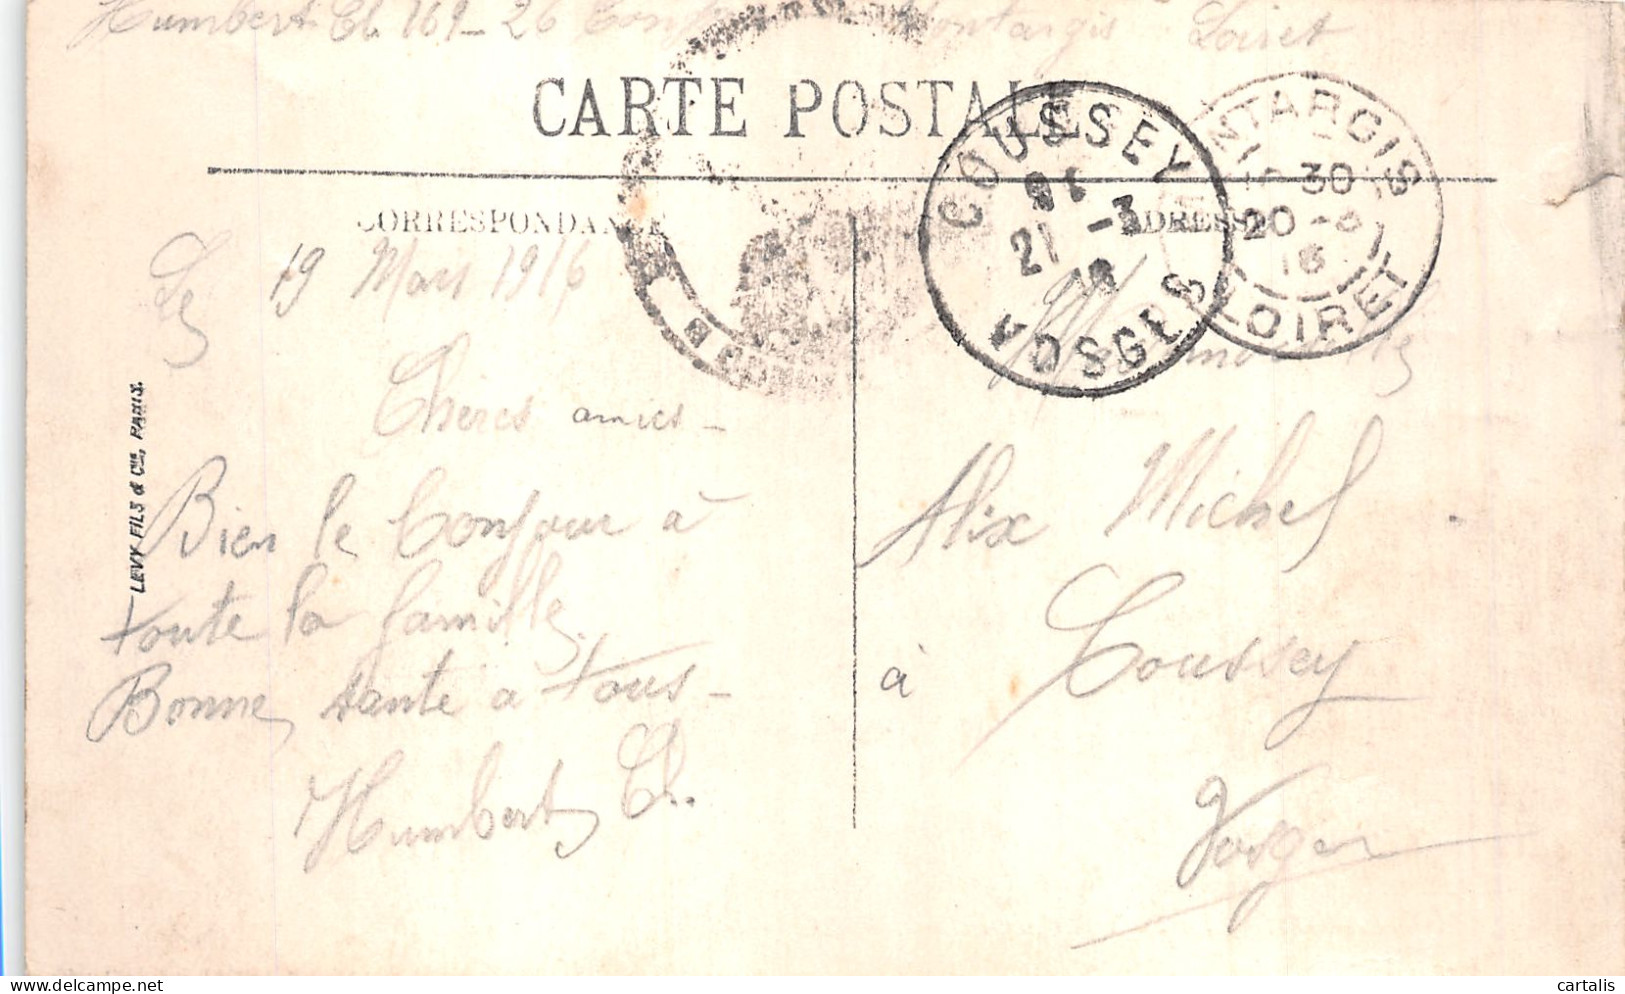 Humbert Ch. 169 - 26 Montargis Loiret
CARTE POSTALE
CORRESPONDANCE
ADRESSE
COUSSEY
21 -3
16
VOSGES
MONTARGIS
30
20 -3
16
LOIRET
Le 19 Mars 1916
Chères amies -
Bien le bonjour à
toute la famille
Bonne santé a tous -
Humbert Ch.
Alix Michel
à Coussey
Vosges
LEVY FILS & Cie, PARIS.
cartalis